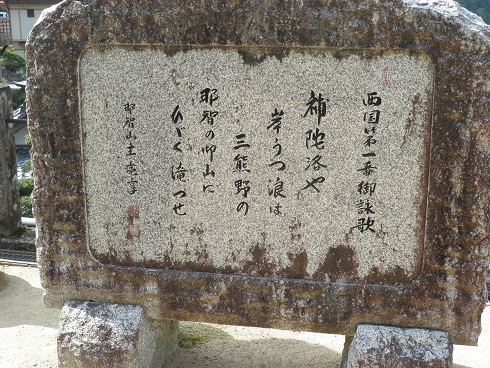 西国第一番御詠歌
補陀洛や
岸うつ浪は
三熊野の
那智の御山に
ひゞく滝つせ
那智山主